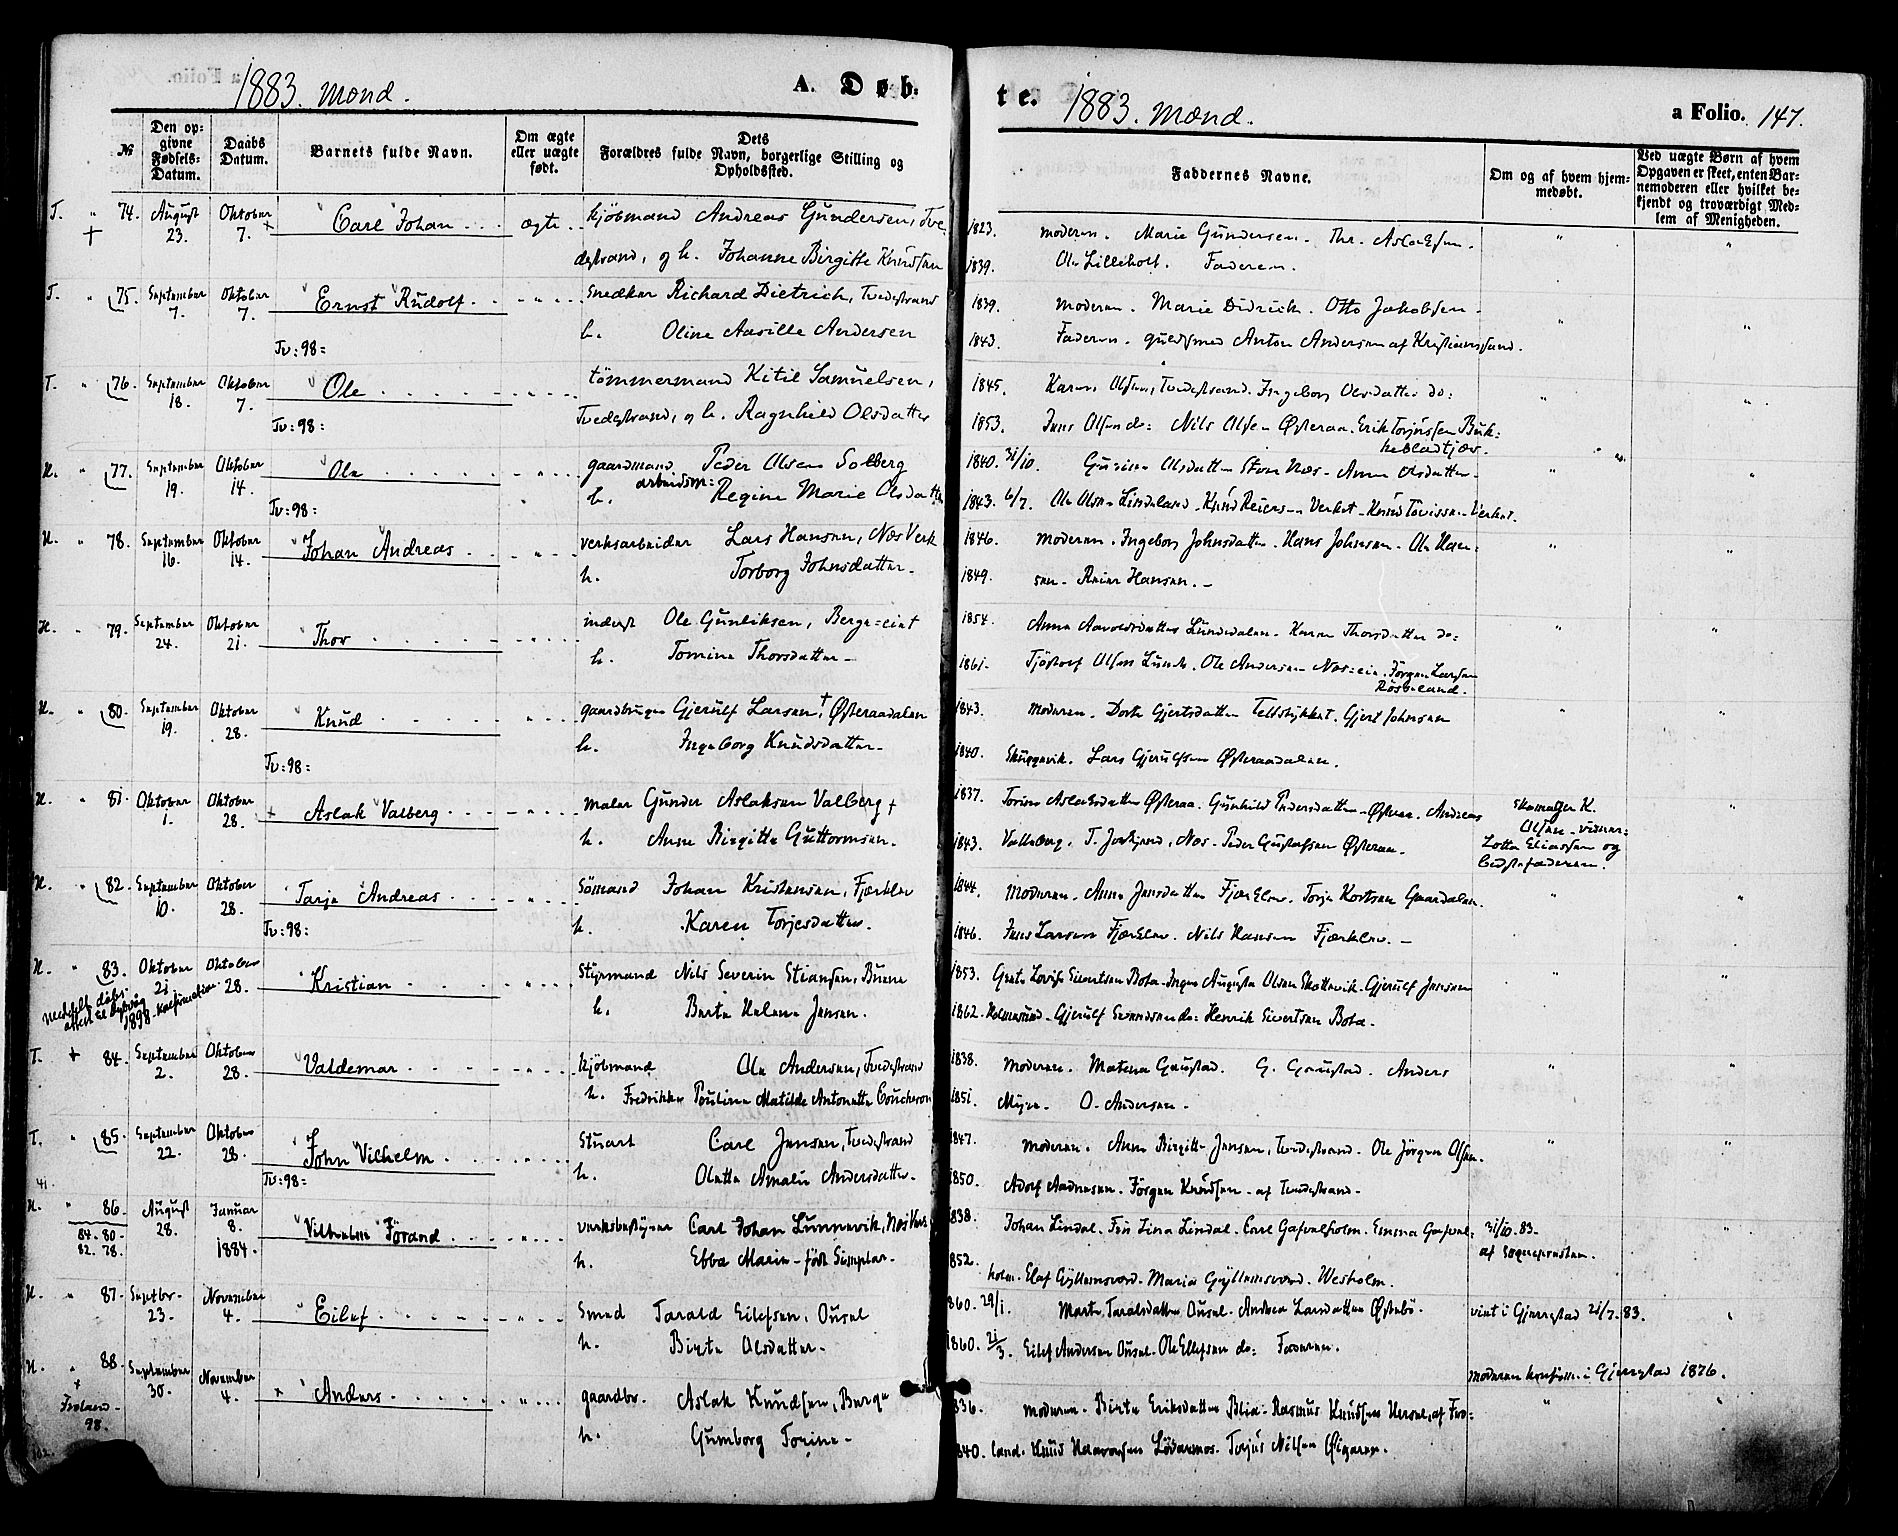 1883. Mænd.
A. Døb-
te.
1883. Mænd.
a Folio. 147.
№
Den opgivne Fødsels-Datum.
Daabs Datum.
Barnets fulde Navn.
Om ægte eller uægte født.
Dets Forældres fulde Navn, borgerlige Stilling og Opholdssted.
Faddernes Navne.
Om og af hvem hjemmedøbt.
Ved uægte Børn af hvem Opgaven er skeet, enten Barnemoderen eller hvilket bekjendt og troværdigt Medlem af Menigheden.
T. " 74. August 23. Oktober 7. Carl Johan ægte kjøbmand Andreas Gundersen, Tve- 1823. moderen. Marie Gundersen. Thr. Aslaksen.
destrand, og h. Johanne Birgitte Knudsen 1839. Ole Lilleholt. Faderen.
T. " 75. September 7. Oktober 7. Ernst Rudolf snedker Richard Dietrich, Tvedestrand 1839. moderen. Marie Didrich. Otto Jakobsen.
Tv: 98: h. Oline Aasille Andersen 1843. Faderen. guldsmed Anton Andersen af Kristianssund.
T. " 76. September 18. Oktober 7. Ole tømmermand Kitil Samuelsen, 1845. Karen Olsen, Tvedestrand. Ingeborg Olsdatter do:
Tv: 98: Tvedestrand, og h. Ragnhild Olsdatter 1853. Jens Olsen do: Nils Olsen Østeraa. Erik Torjussen Buk-
kebladtjær.
H. " 77. September 19. Oktober 14. Ole gaardmand Peder Olsen Solberg 1840. 31/10. Gurine Olsdatter Stene Næs. Anne Olsdatter
arbeidsm:
Tv: 98: h. Regine Marie Olsdatter 1843. 6/7. Ole Olsen Lindeland. Knud Reiersen Verket. Knud Tovissen Verket.
H. " 78. September 16. Oktober 14. Johan Andreas verksarbeider Lars Hansen, Næs Verk 1846. moderen. Ingeborg Johnsdatter. Hans Johnsen. Ole Han-
h. Torborg Johnsdatter 1849. sen. Reier Hansen.
H. " 79. September 24. Oktober 21. Thor inderst Ole Gunleiksen, Berge=eiet 1854. Anne Aanoldsdatter Lundedalen. Karen Thorsdatter do:
h. Tomine Thorsdatter 1861. Tjøstolf Olsen Lunde. Ole Andersen Næs=eie. Jørgen Larsen
Røseland.
H. " 80. September 19. Oktober 28. Knud gaardbruger Gjerulf Larsen, Østeraadalen 1843. moderen. Dorte Gjertsdatter Teltstykket. Gjert Johnsen
Tv: 98: h. Ingeborg Knudsdatter 1840. Skuggevik. Lars Gjerulfsen Østeraadalen.
H. " 81. Oktober 1. Oktober 28. Aslak Valberg maler Gunder Aslaksen Valberg 1837. Torine Aslaksdatter Østeraa. Gunhild Pedersdatter Østeraa. Andreas skomager K.
Olsen
h. Anne Birgitte Guttormsen. 1843. Valleberg. T. Jorkjend, Næs. Peder Gustafsen Østeraa. Lotte Eliassen og
bedstefaderen.
H. " 82. September 10. Oktober 28. Tarje Andreas sømand Johan Kristensen, Fjærkler 1844. moderen. Anne Jensdatter Fjærkler. Torje Kortsen Gaardalen.
Tv: 98: h. Karen Torjesdatter. 1846. Jens Larsen Fjærkler. Nils Hansen Fjærkler.
H. " 83. Oktober 21. Oktober 28. Kristian styrmand Nils Severin Stiansen, Buene 1853. Grete Lovise Sivertsen Bota. Inger Augusta Olsen Skottevik. Gjerulf Jensen
meddelt dåbs-
attest til Dybvåg
1898. Konfirmation.
h. Berte Helene Jensen. 1862. Holmesund. Gjerulf Svendsen do: Henrik Sivertsen Bota.
T. + 84. September 2. Oktober 28. Valdemar kjøbmand Ole Andersen, Tvedestrand 1838. moderen. Matena Gaustad. G. Gaustad. Anders
h. Fredrikke Pouline Matilde Antonette Coucheron 1851. Myre. O. Andersen.
T. " 85. September 22. Oktober 28. John Vilhelm Stuart Carl Jensen, Tvedestrand 1847. moderen. Anne Birgitte Jensen, Tvedestrand. Ole Jørgen Olsen.
Tv: 98: h. Olette Amalie Andersdatter. 1850. Adolf Aadnesen. Jørgen Knudsen. af Tvedestrand.
41.
H. " 86. August 28. Januar 8. 1884. Vilhelm Jørand verksbestyrer Carl Johan Lunnevik, Næs Verk 1838. Johan Lindal. Fru Lina Lindal. Carl Gasvelholm. Emma Gasvel- 31/10. 83.
af Sognepresten.
84. 80.
82. 78.
h. Ebba Marie født Simplar. 1852. holm. Elaf Gyllensvärd. Maria Gyllensvärd. Wesholm.
H. " 87. Septbr. 23. November 4. Eilef Smed Tarald Eilefsen, Ousel 1860. 29/1. Marte Taralsdatter Ousel. Andrea Larsdatter Østebø. viet i Gjerrestad 21/7. 83.
h. Birte Olsdatter. 1860. 21/3. Eilef Andersen Ousel. Ole Ellefsen do: Faderen.
moderen konfirm. i Gjerrestad 1876.
H. " 88. September 30. November 4. Anders gaardbr. Aslak Knudsen, Berge 1836. moderen. Birte Eriksdatter Blia. Rasmus Knudsen Ufsvel, af Fro-
Froland
98.
h. Gumborg Torine 1840. land. Knud Haavorsen Lødesmos. Terjus Nilsen Øigaren.
102.